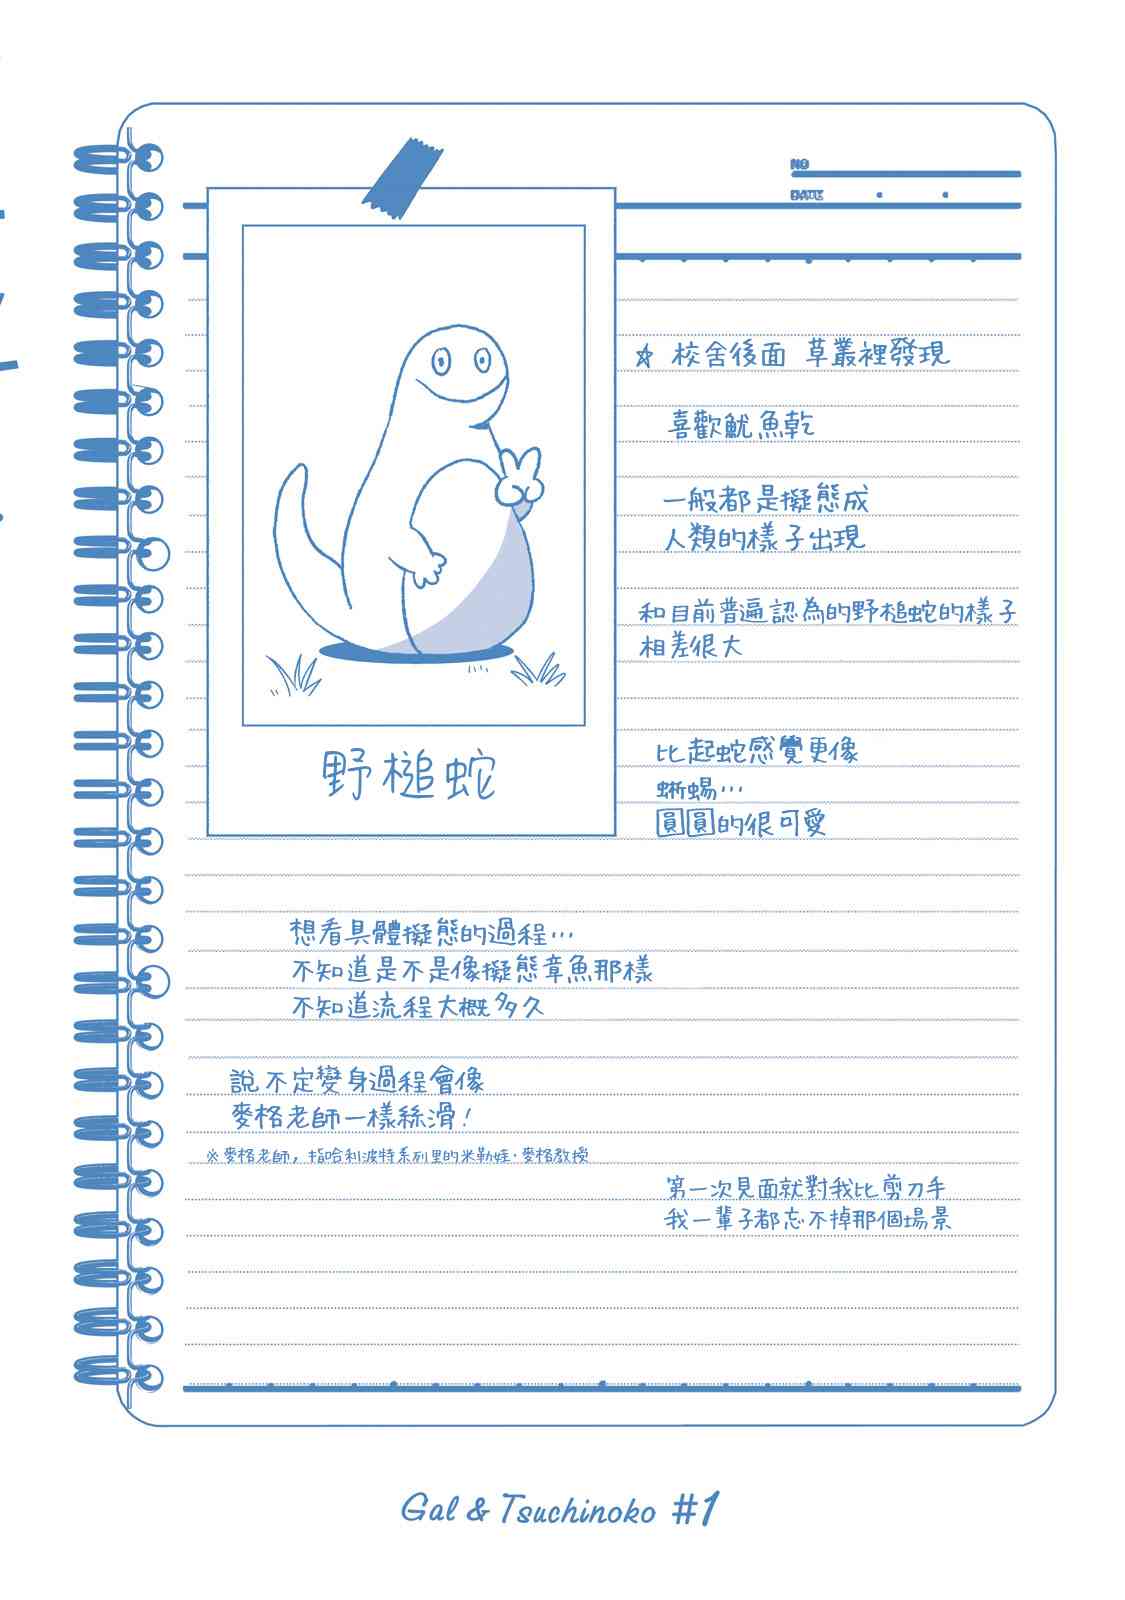 NO
DATE
☆ 校舍後面 草叢裡發現
喜歡魷魚乾
一般都是擬態成
人類的樣子出現
和目前普遍認為的野槌蛇的樣子
相差很大
野槌蛇
比起蛇感覺更像
蜥蜴…
圓圓的很可愛
想看具體擬態的過程…
不知道是不是像擬態章魚那樣
不知道流程大概多久
說不定變身過程會像
麥格老師一樣絲滑!
※麥格老師,指哈利波特系列里的米勒娃·麥格教授
第一次見面就對我比剪刀手
我一輩子都忘不掉那個場景
Gal & Tsuchinoko #1